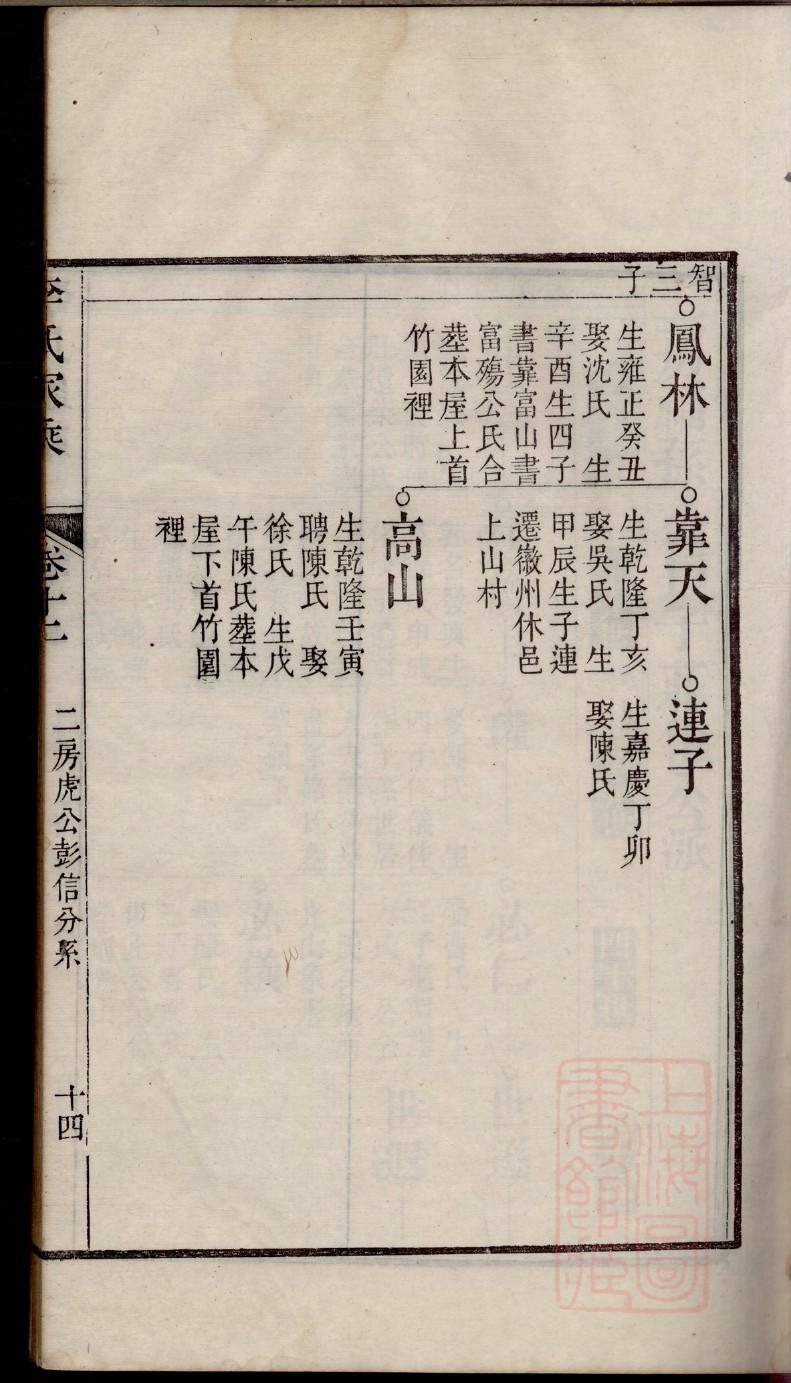 智三子
鳳林
生雍正癸丑
娶沈氏　生
辛酉生四子
書靠富山書
富殤公氏合
塟本屋上首
竹園裡
靠天
生乾隆丁亥
娶吳氏　生
甲辰生子連
遷徽州休邑
上山村
高山
生乾隆壬寅
聘陳氏　娶
徐氏　生戊
午陳氏塟本
屋下首竹園
裡
連子
生嘉慶丁卯
娶陳氏
氏家乘
卷十二
二房虎公彭信分系
十四
上海圖書館藏